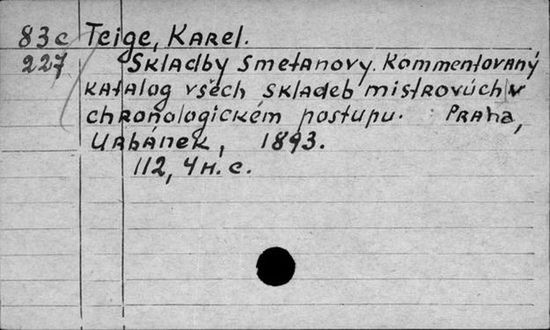 83c Teige, Karel.
227 Skladby Smetanovy. Kommentovaný
katalog všech skladeb mistrovúch v
chronologickém postupu. Praha,
Urbánek, 1893.
112, 4 н. с.